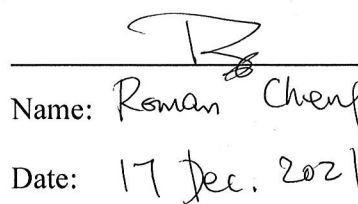 Name: Roman Cheng
Date: 17 Dec. 2021